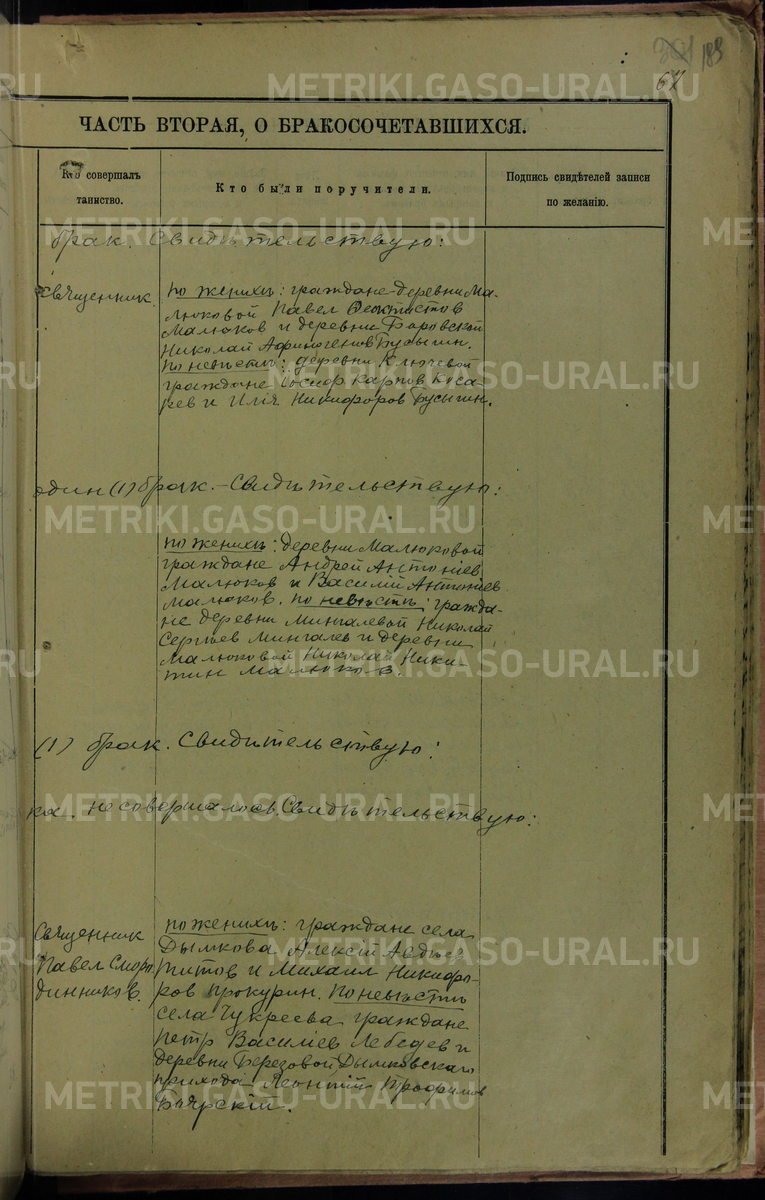 189
67
ЧАСТЬ ВТОРАЯ, О БРАКОСОЧЕТАВШИХСЯ.
Кто совершалъ таинство.
Кто были поручители.
Подпись свидѣтелей записи по желанію.
брак. Свидѣтельствую:
священник
по женихѣ: граждане деревни Ма-
люковой Павел Феоктистов
Малюков и деревни Боровской
Николай Афиногенов Бусыгин.
По невѣстѣ: деревни Ключевой
граждане Иосиф Карпов Куса-
рев и Илія Никифоров Бусыгин.
один (1) брак. - Свидѣтельствую:
по женихѣ: деревни Малюковой
граждане Андрей Антоніев
Малюков и Василій Антоніев
Малюков. по невѣстѣ: гражда-
не деревни Мингалевой Николай
Сергѣев Мингалев и деревни
Малюковой Николай Ники-
тин Малюков.
(1) брак. Свидѣтельствую:
ка. не совершалось. Свидѣтельствую:
Священник
Павел Сморо
динников.
по женихѣ: граждане села
Дымкова Алексій Авдѣев
Титов и Михаил Никифо-
ров Прокурин. По невѣстѣ
села Чукреева граждане
Петр Василіев Лебедев и
деревни Березовой Дымковскаго
прихода Леонтій Трофимов
Боярскій.
METRIKI.GASO-URAL.RU